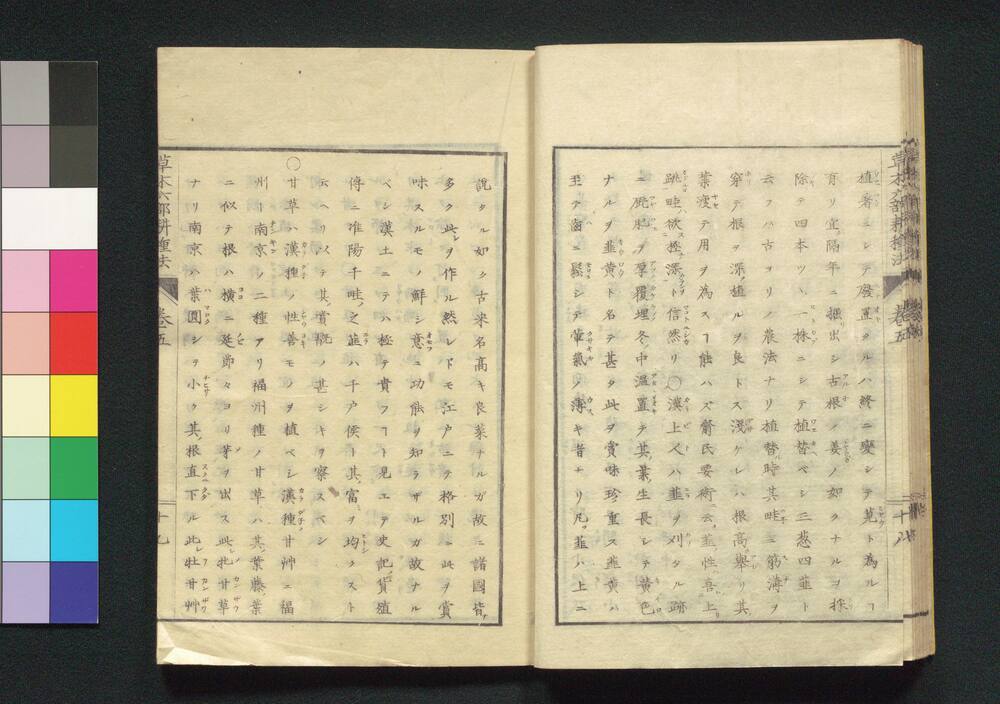 植著ニシテ廢置タルハ終ニ變シテ莧ト為ルヿ
有リ宜隔年ニ掘出シ古根ノ姜ノ如クナルヲ採
除テ四本ツヽ一株ニシテ植替ベシ三葱四韮ト
云フハ古ヨリノ農法ナリ植替時其畦ニ筋溝ヲ
穿テ根ヲ深植ルヲ良トス淺ケレハ根高舉リ其
葉瘦テ用ヲ為スヿ能ハズ齊民要術ニ云韮性喜上
跳畦欲極深ト信然リ○漢土人ハ韮ヲ刈タル跡
ニ厩肥ヲ厚覆埋冬中溫置テ其葉生長シテ黄色
ナルヲ韮黄ト名テ甚タ此ヲ賞味珍重ス韮黄ハ
至テ鹵ニ鬆シテ葷氣ノ薄キ者ナリ凡韮ハ上ニ
草木六部耕種法 卷五 十八
說タル如ク古来名高キ良菜ナルガ故ニ諸國皆
多ク此ヲ作ル然レドモ江戸ニテ格別ニ此ヲ賞
味スルモノ鮮シ意ニ功能ヲ知ラザルガ故ナル
ベシ漢土ニテハ極テ貴フヿト見エテ史記貨殖
傳ニ准陽千畦之韮ハ千户侯ト其富ヲ均クスト
云ヘリ以テ其賞翫ノ甚シキヲ察スベシ
○甘草ハ漢種ノ性善モノヲ植ベシ漢種甘艸ニ福
州ト南京ノ二種アリ福州種ノ甘草ハ其葉藤葉
ニ似テ根ハ横ニ延節々ヨリ芽ヲ出ス此ヲ牝甘草
ナリ南京ハ葉圓シテ小ク其根直下ル此牡甘艸
草木六部耕種法 卷五 十九